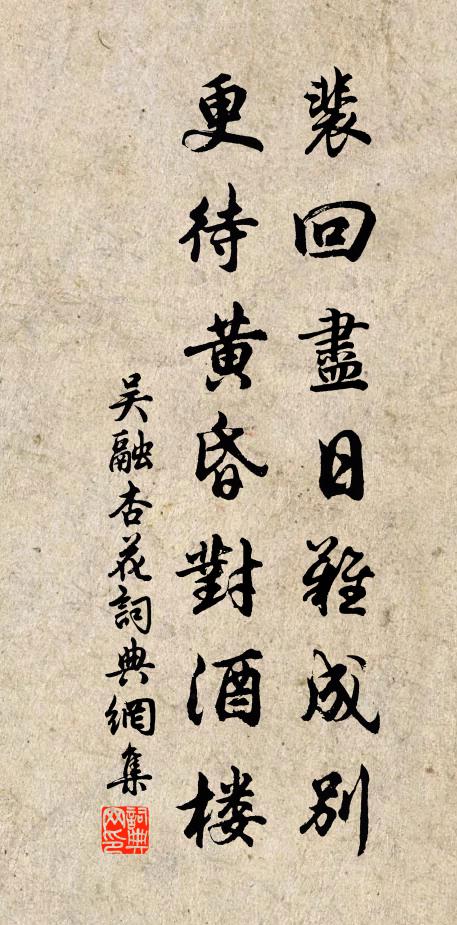 裴回盡日難成別
更待黄昏對酒楼
吴融杏花詞典網集
詞典网印